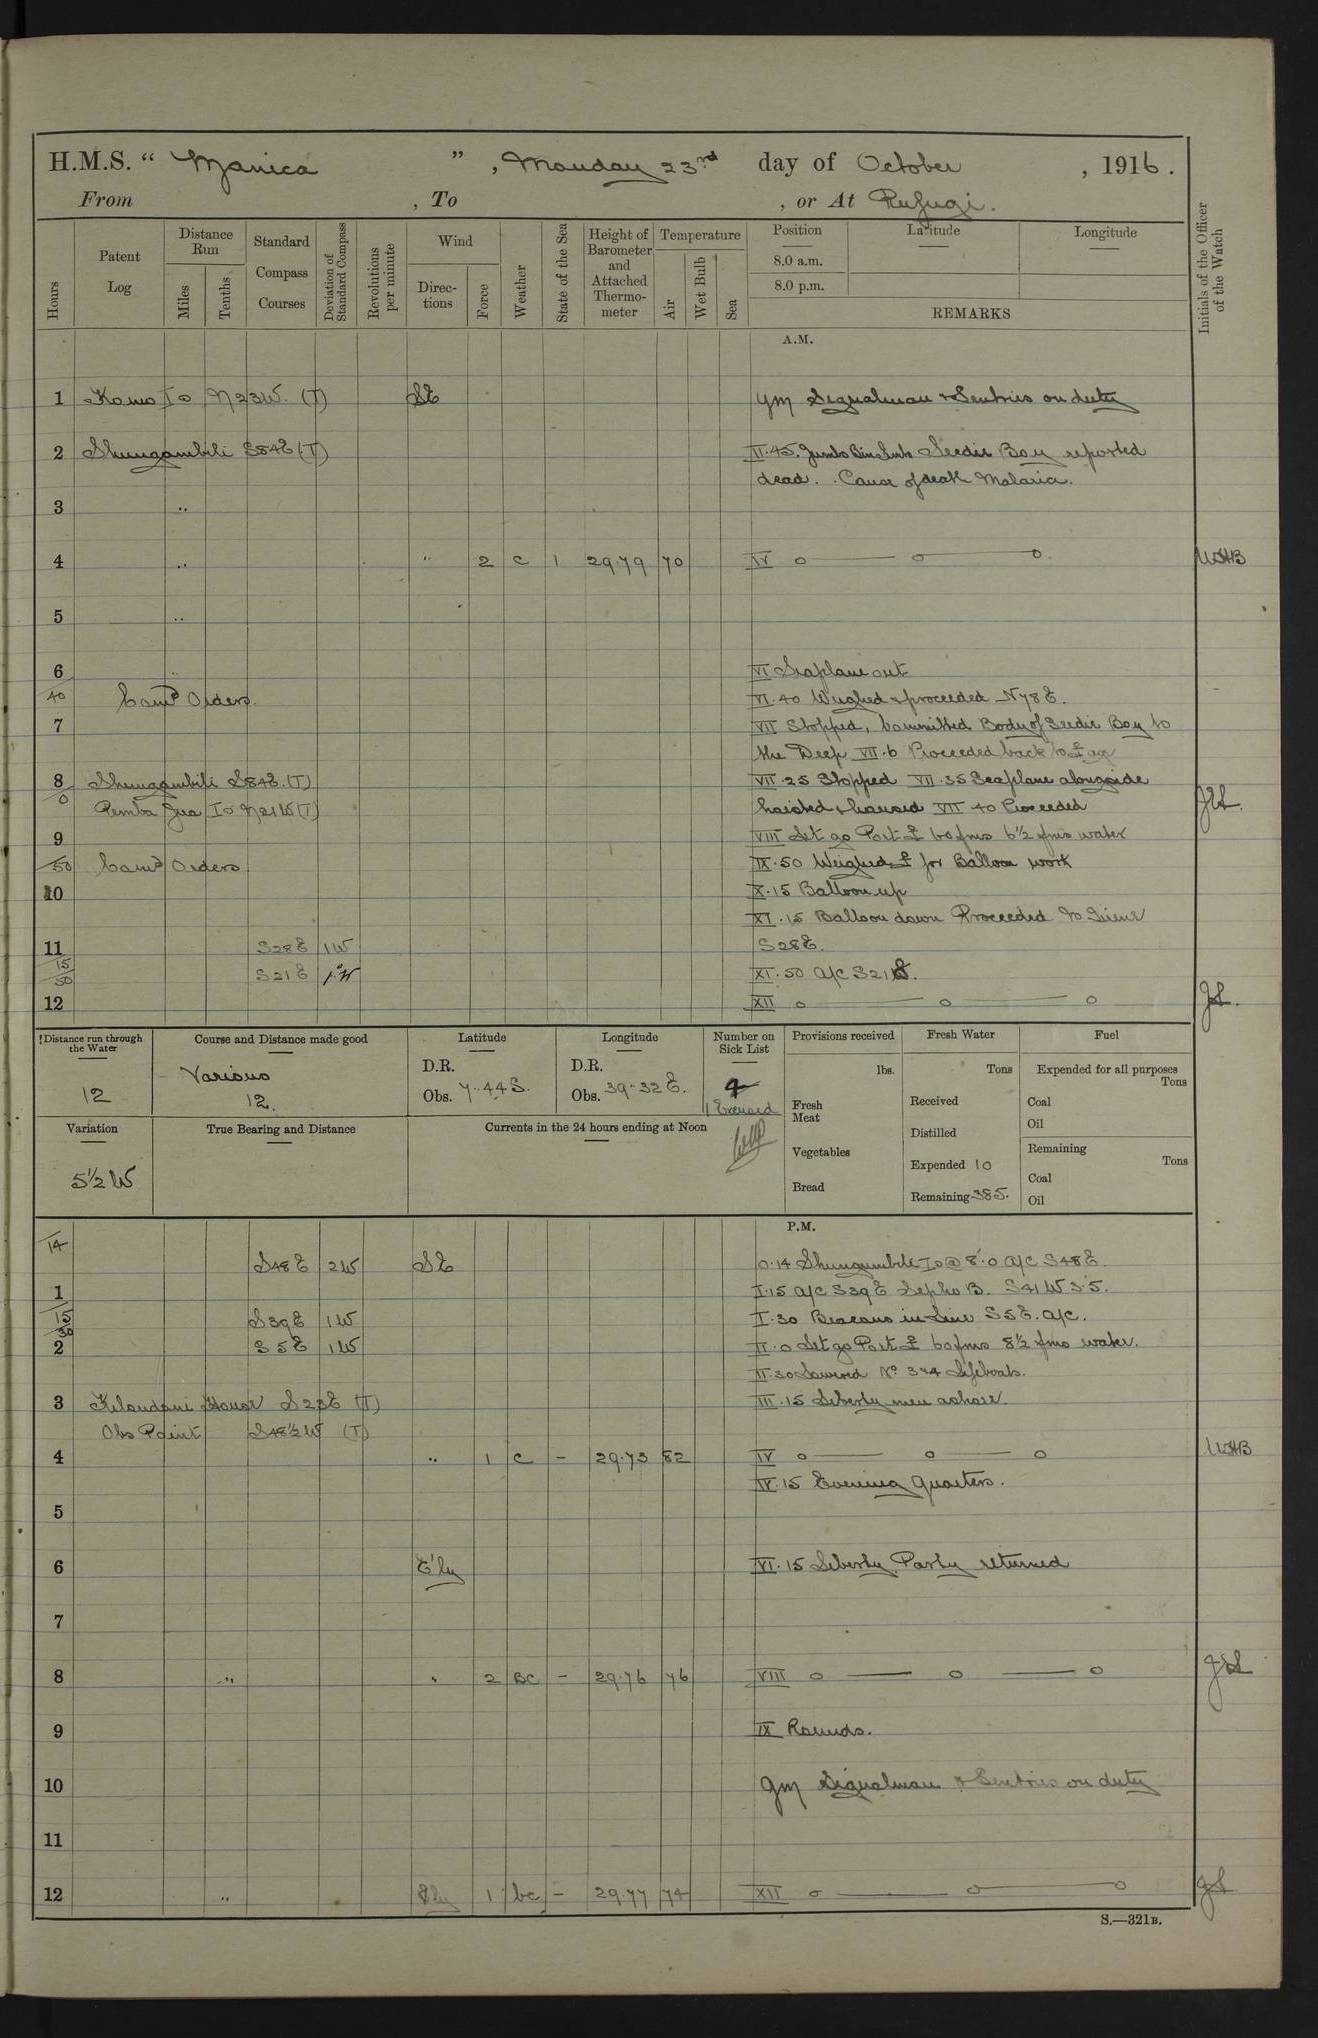 H.M.S. “ Manica ” , Monday 23rd day of October , 1916 .
From , To , or At Rufugi.
Hours
Patent Log
Distance Run
Miles
Tenths
Standard Compass Courses
Deviation of Standard Compass
Revolutions per minute
Wind
Direc-tions
Force
Weather
State of the Sea
Height of Barometer and Attached Thermo-meter
Temperature
Air
Wet Bulb
Sea
Position Latitude Longitude
8.0 a.m.
8.0 p.m.
REMARKS
Initials of the Officer of the Watch
A.M.
1 Komo Io N23W. (T) SE gm Signalman & Sentries on duty
2 Shungambili S84E (T) II.45. Jumbo Bin Seedie Boy reported
dead. Cause of death Malaria.
3 ..
4 .. " 2 c 1 29.79 70 IV WHB
5 ..
6 .. VI Seaplane out
40 Comd Orders. VI.40 Weighed & proceeded N78E.
7 VII Stopped, Committed Body of Seedie Boy to
the Deep VII.6 Proceeded back to ag
8 Shungambili S84E. (T) VII.25 Stopped VII.35 Seaplane alongside
0 Pemba Jua Io N21W (T) hoisted & housed VII 40 Proceeded
9 VIII Let go Port 60 fms 6½ fms water
50 Comd Orders IX.50 Weighed for Balloon work
10 X.15 Balloon up
XI.15 Balloon down Proceeded to
11 S28E 1W S28E.
15
50 S21E 1W XI.50 a/c S21E.
12 XII
Distance run through the Water
12
Course and Distance made good
Various
12.
Latitude
D.R.
Obs. 7.44 S.
Longitude
D.R.
Obs. 39.32 E.
Number on Sick List
4
1 Excused
Provisions received
lbs.
Fresh Meat
Vegetables
Bread
Fresh Water
Tons
Received
Distilled
Expended 10
Remaining 385.
Fuel
Expended for all purposes
Tons
Coal
Oil
Remaining
Tons
Coal
Oil
Variation
5½ W
True Bearing and Distance
Currents in the 24 hours ending at Noon
P.M.
14 S48E 2W SE 0.14 Shungumbili Io @ 8'.0 a/c S48E.
1 I.15 a/c S39E B. S41W 3.5.
15 S39E 1W I.30 Beacons in Line S5E. a/c.
30
2 S5E 1W II.0 Let go Port 60 fms 8½ fms water.
II.30 Lowered No 3 & 4 Lifeboats.
3 Kilindani House S22E (T) III.15 Liberty men ashore.
Obs Point S48½W (T)
4 .. 1 c - 29.73 82 IV WHB
IV.15 Evening Quarters.
5
6 E'ly VI.15 Liberty Party returned
7
8 " " 2 BC - 29.76 76 VIII
9 IX Rounds.
10 gm Signalman & Sentries on duty
11
12 " 1 bc - 29.77 74 XII
S.—321B.